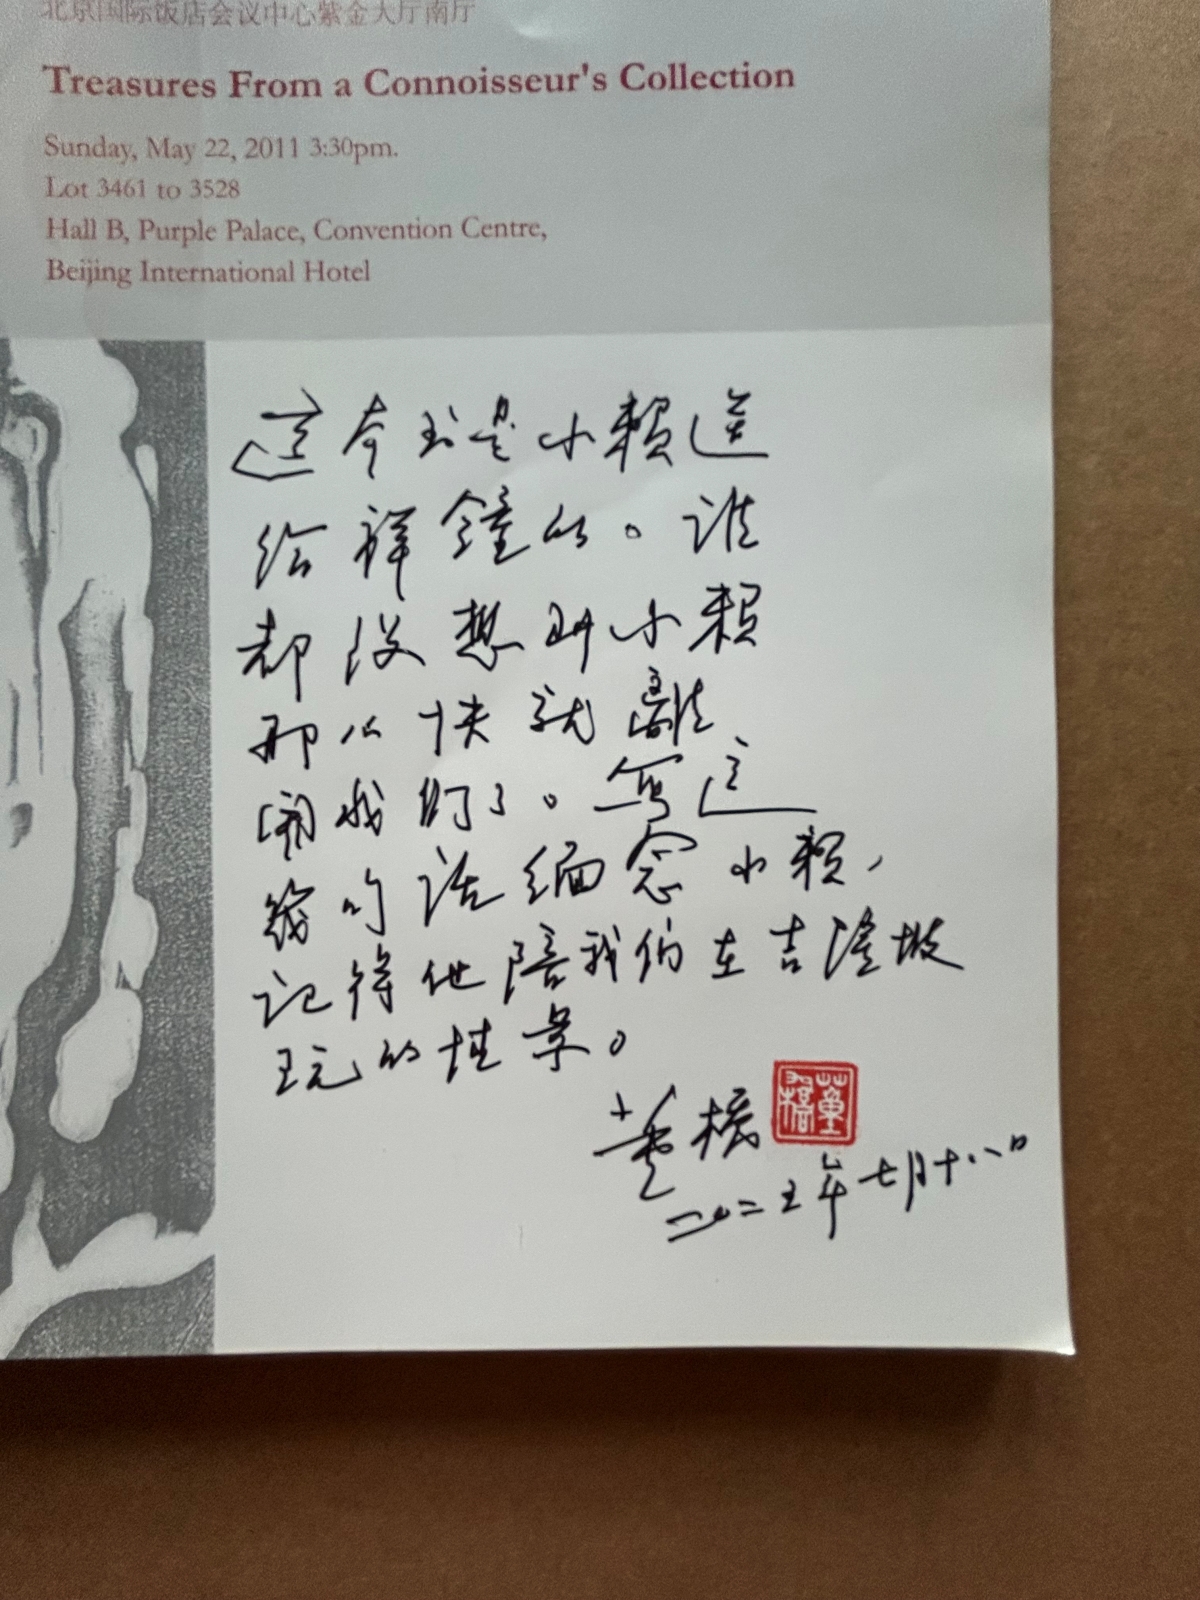 北京国际饭店会议中心紫金大厅南厅
Treasures From a Connoisseur's Collection
Sunday, May 22, 2011 3:30pm.
Lot 3461 to 3528
Hall B, Purple Palace, Convention Centre,
Beijing International Hotel
这本书是小赖送
给祥鐘的。谁
都没想到小赖
那么快就離
開我们了。写这
幾句话缅念小赖，
记得他陪我们在吉隆坡
玩的情景。
董橋
董橋
二〇二五年七月十八日